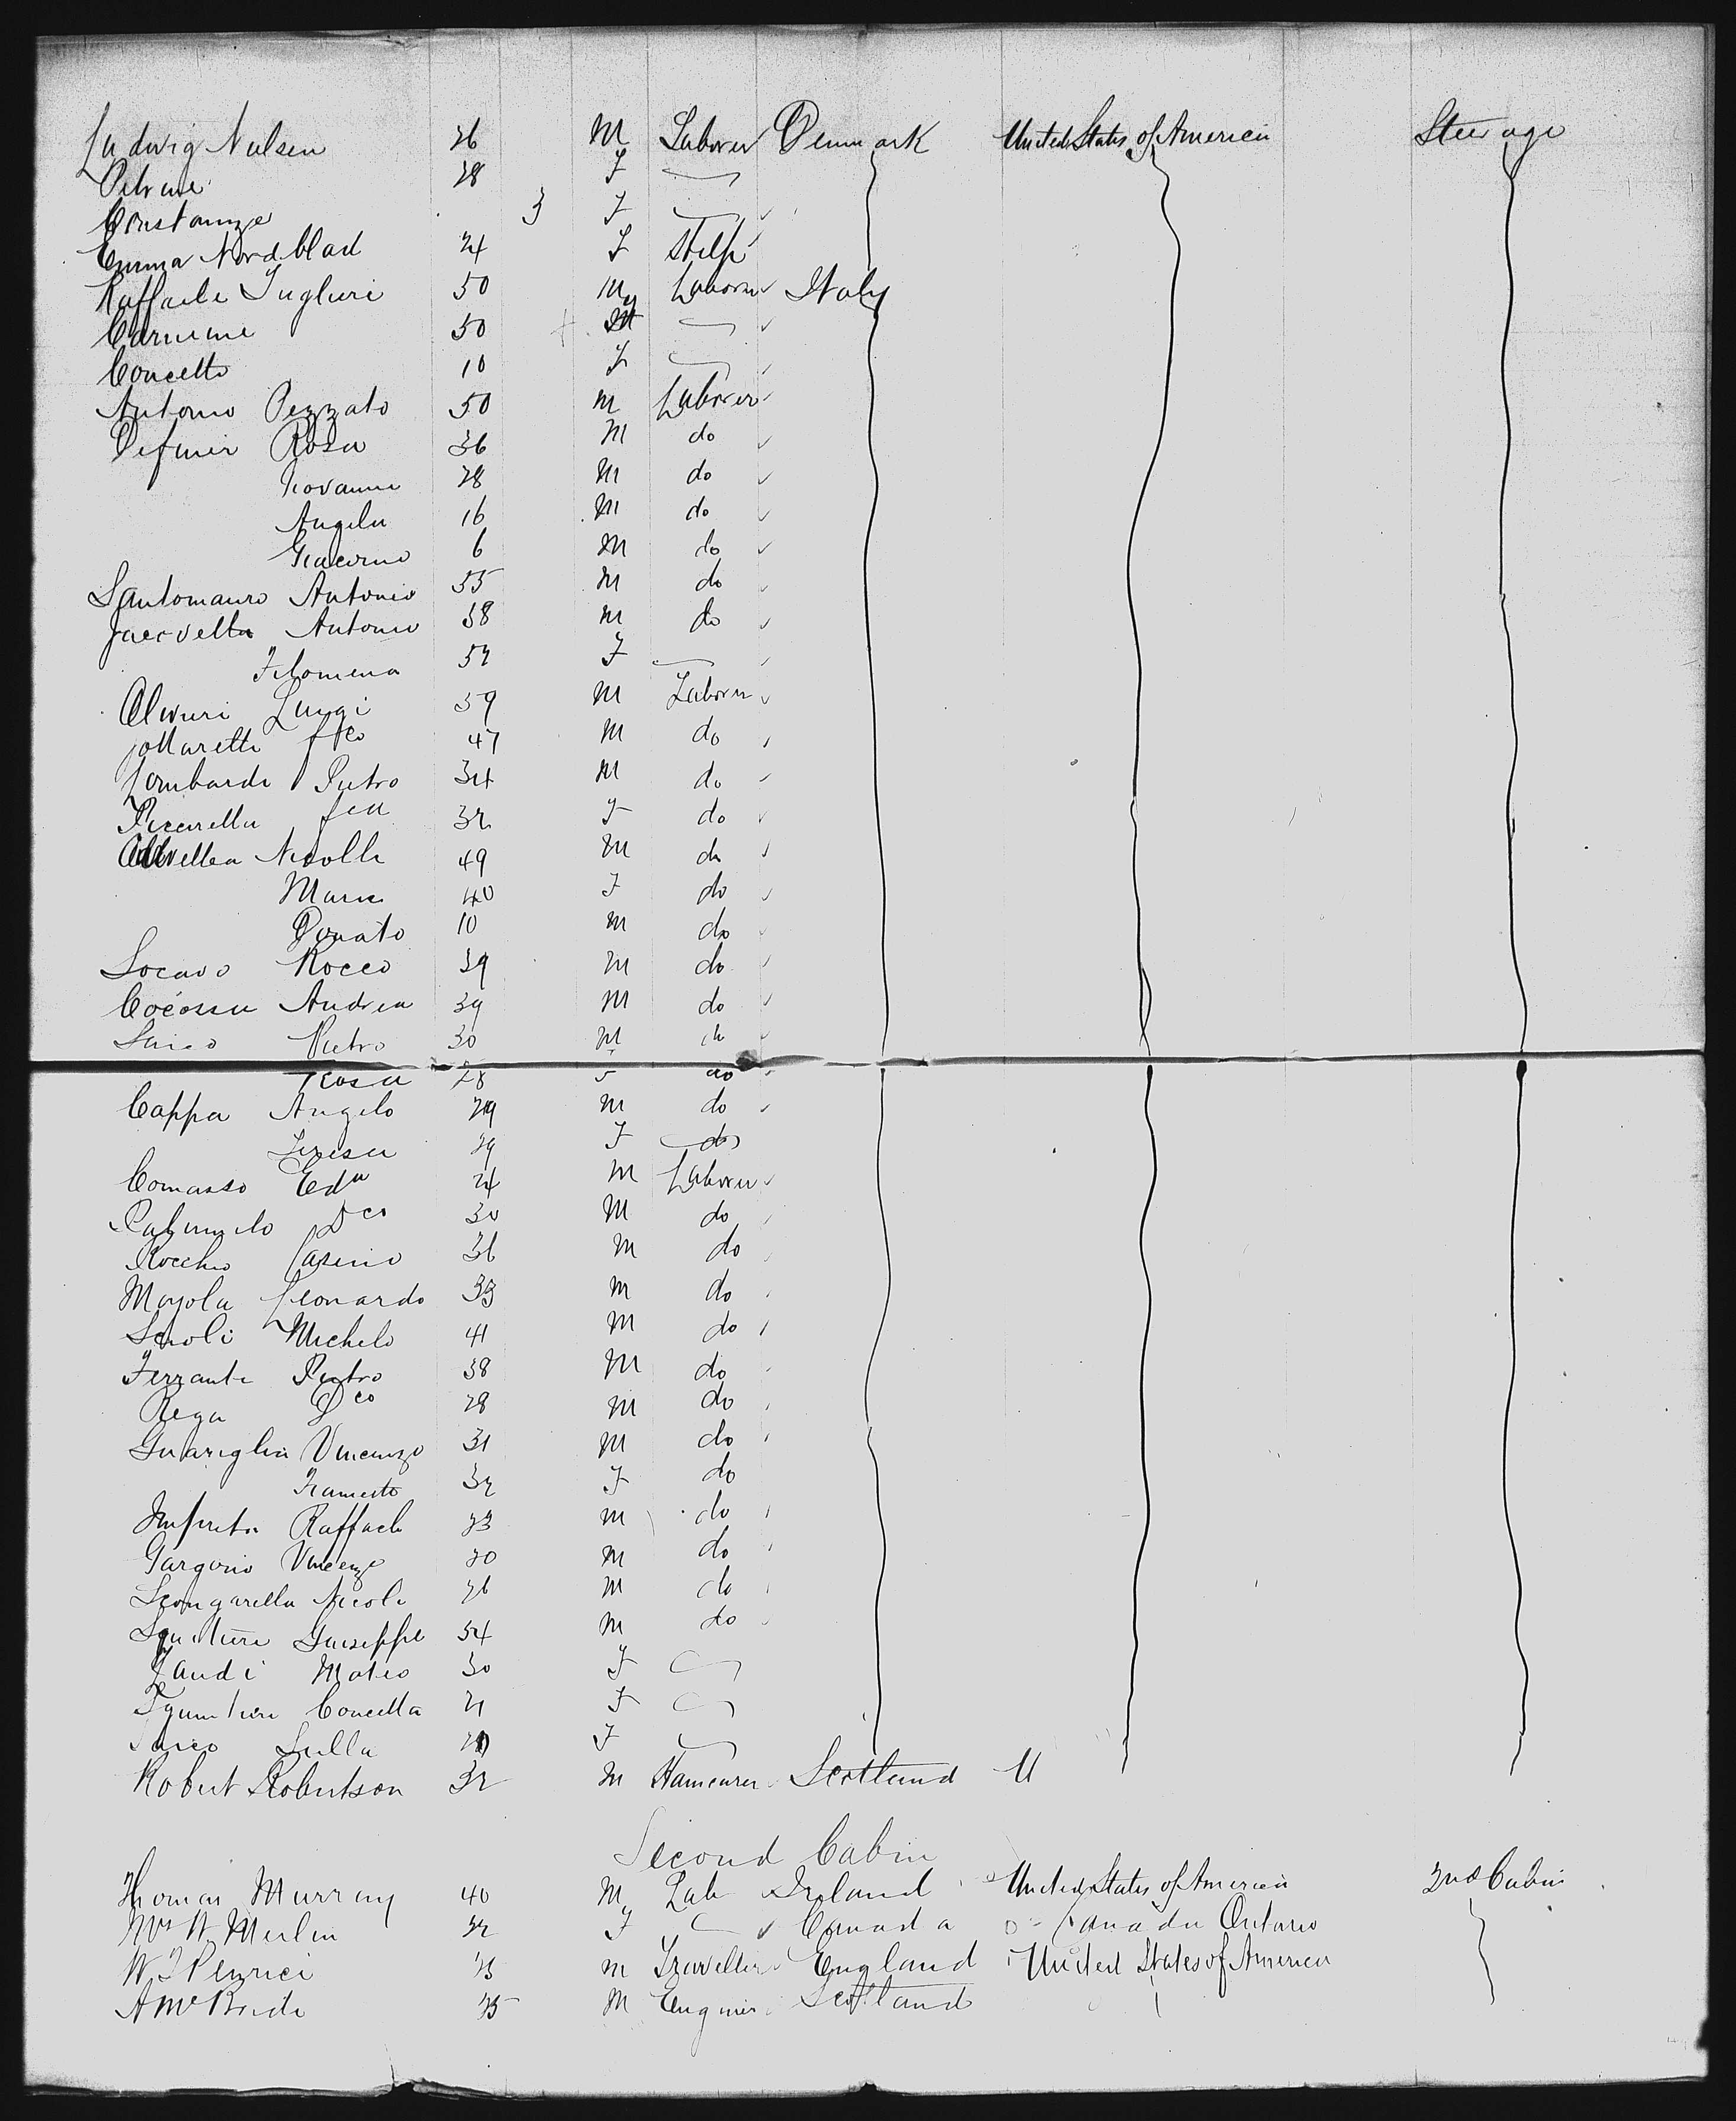 Ludwig Nielsen 26 M Laborer Denmark United States of America Steerage
Petrine 28 F
Constanze 3 F
Emma Nordblad 24 F
Raffaele 50 M Laborer Italy
Carmine 50
Concetta 10 F
Antonio Pezzato 50 M Laborer
Rosa 36 M do
Giovanni 28 M do
Angelu 16 M do
Giacomo 6 M do
Santomauro Antonio 55 M do
Antonio 38 M do
Filomena 52 F
Luigi 59 M Laborer
fco 47 M do
Lombardi Pietro 34 M do
Picarella 32 F do
Nicolle 49 M do
Maria 40 F do
Donato 10 M do
Locavo Rocco 39 M do
Andrea 39 M do
Pietro 30 M do
Rosa 28 do
Cappa Angelo 29 M do
Teresa 29 F do
Comasso Edu 24 M Laborer
Dco 30 M do
Rocchio 36 M do
Mayola Leonardo 33 M do
Michele 41 M do
Ferrante Pietro 38 M do
Rega Dco 28 M do
Guariglia Vincenzo 31 M do
32 F do
Raffaele 23 M do
Gargono Vincenzo 30 M do
Scongarella Nicole 26 M do
Guiseppe 54 M do
Zandi Mateo 30 F
Concetta 21 F
F
Robert Robertson 32 M Scotland U
Second Cabin
Thomas Murray 40 M Lab Ireland United States of America 2nd Cabin
Mrs W. Merlin 32 F Canada Canada Ontario
W J Penrice 25 M Traveller England United States of America
A McBride 25 M Enginer Scotland